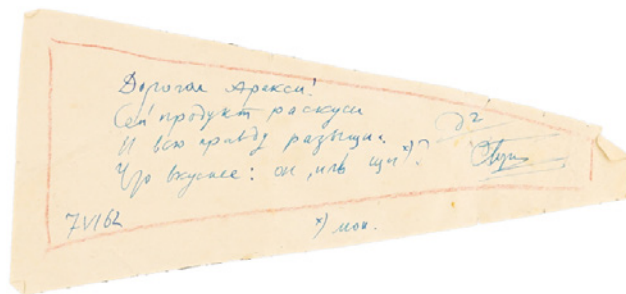 Дорогая Арекси!
Сей продукт раскуси
И всю правду разыщи.
Что вкуснее: он, иль щи *)?
7 VI 62
*) мои.